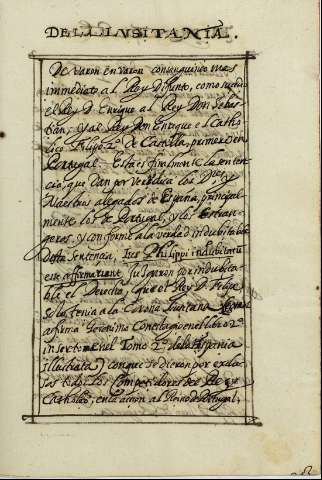 DE LA LVSITANIA.
De varon en varon consanguineo mas
immediato al Rey Difunto, como sucedio
el Rey D. Enrique al Rey Don Sebas-
tian; y al Rey Don Enrique el Catho-
lico Filipo 2º de Castilla, primero en
Portugal. Esta es finalmente la senten-
cia, que dan por veridica los
Maestros alegados de España, principal-
mente los de Portugal, y los Estran-
geros, y conforme a la verdad indubitable
desta Sentencia, Ius Philippi indubitatum
esse affirmarunt. Juzgaron por indubita-
ble el Derecho, que el Rey D. Felipe
2º tenia a la Corona Lusitana
afirma Geronimo Conestagio en el libro 2º
inserto en el Tomo 2º de la Hispania
Illustrata) con que se dieron por exclu-
sos todos los competidores del Rey
Catholico, en la accion al Reino de Portugal,